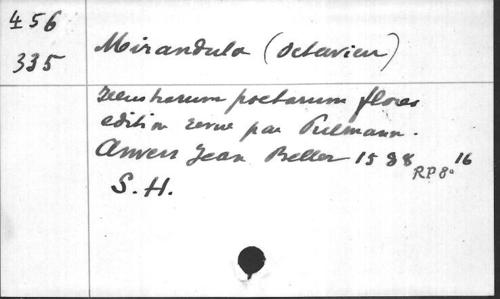 456
335
Mirandula (Octavien)
Illustrarum poetarum flores
edition revue par Pulmann.
Anvers Jean Beller 1588 16
RP8°
S.H.